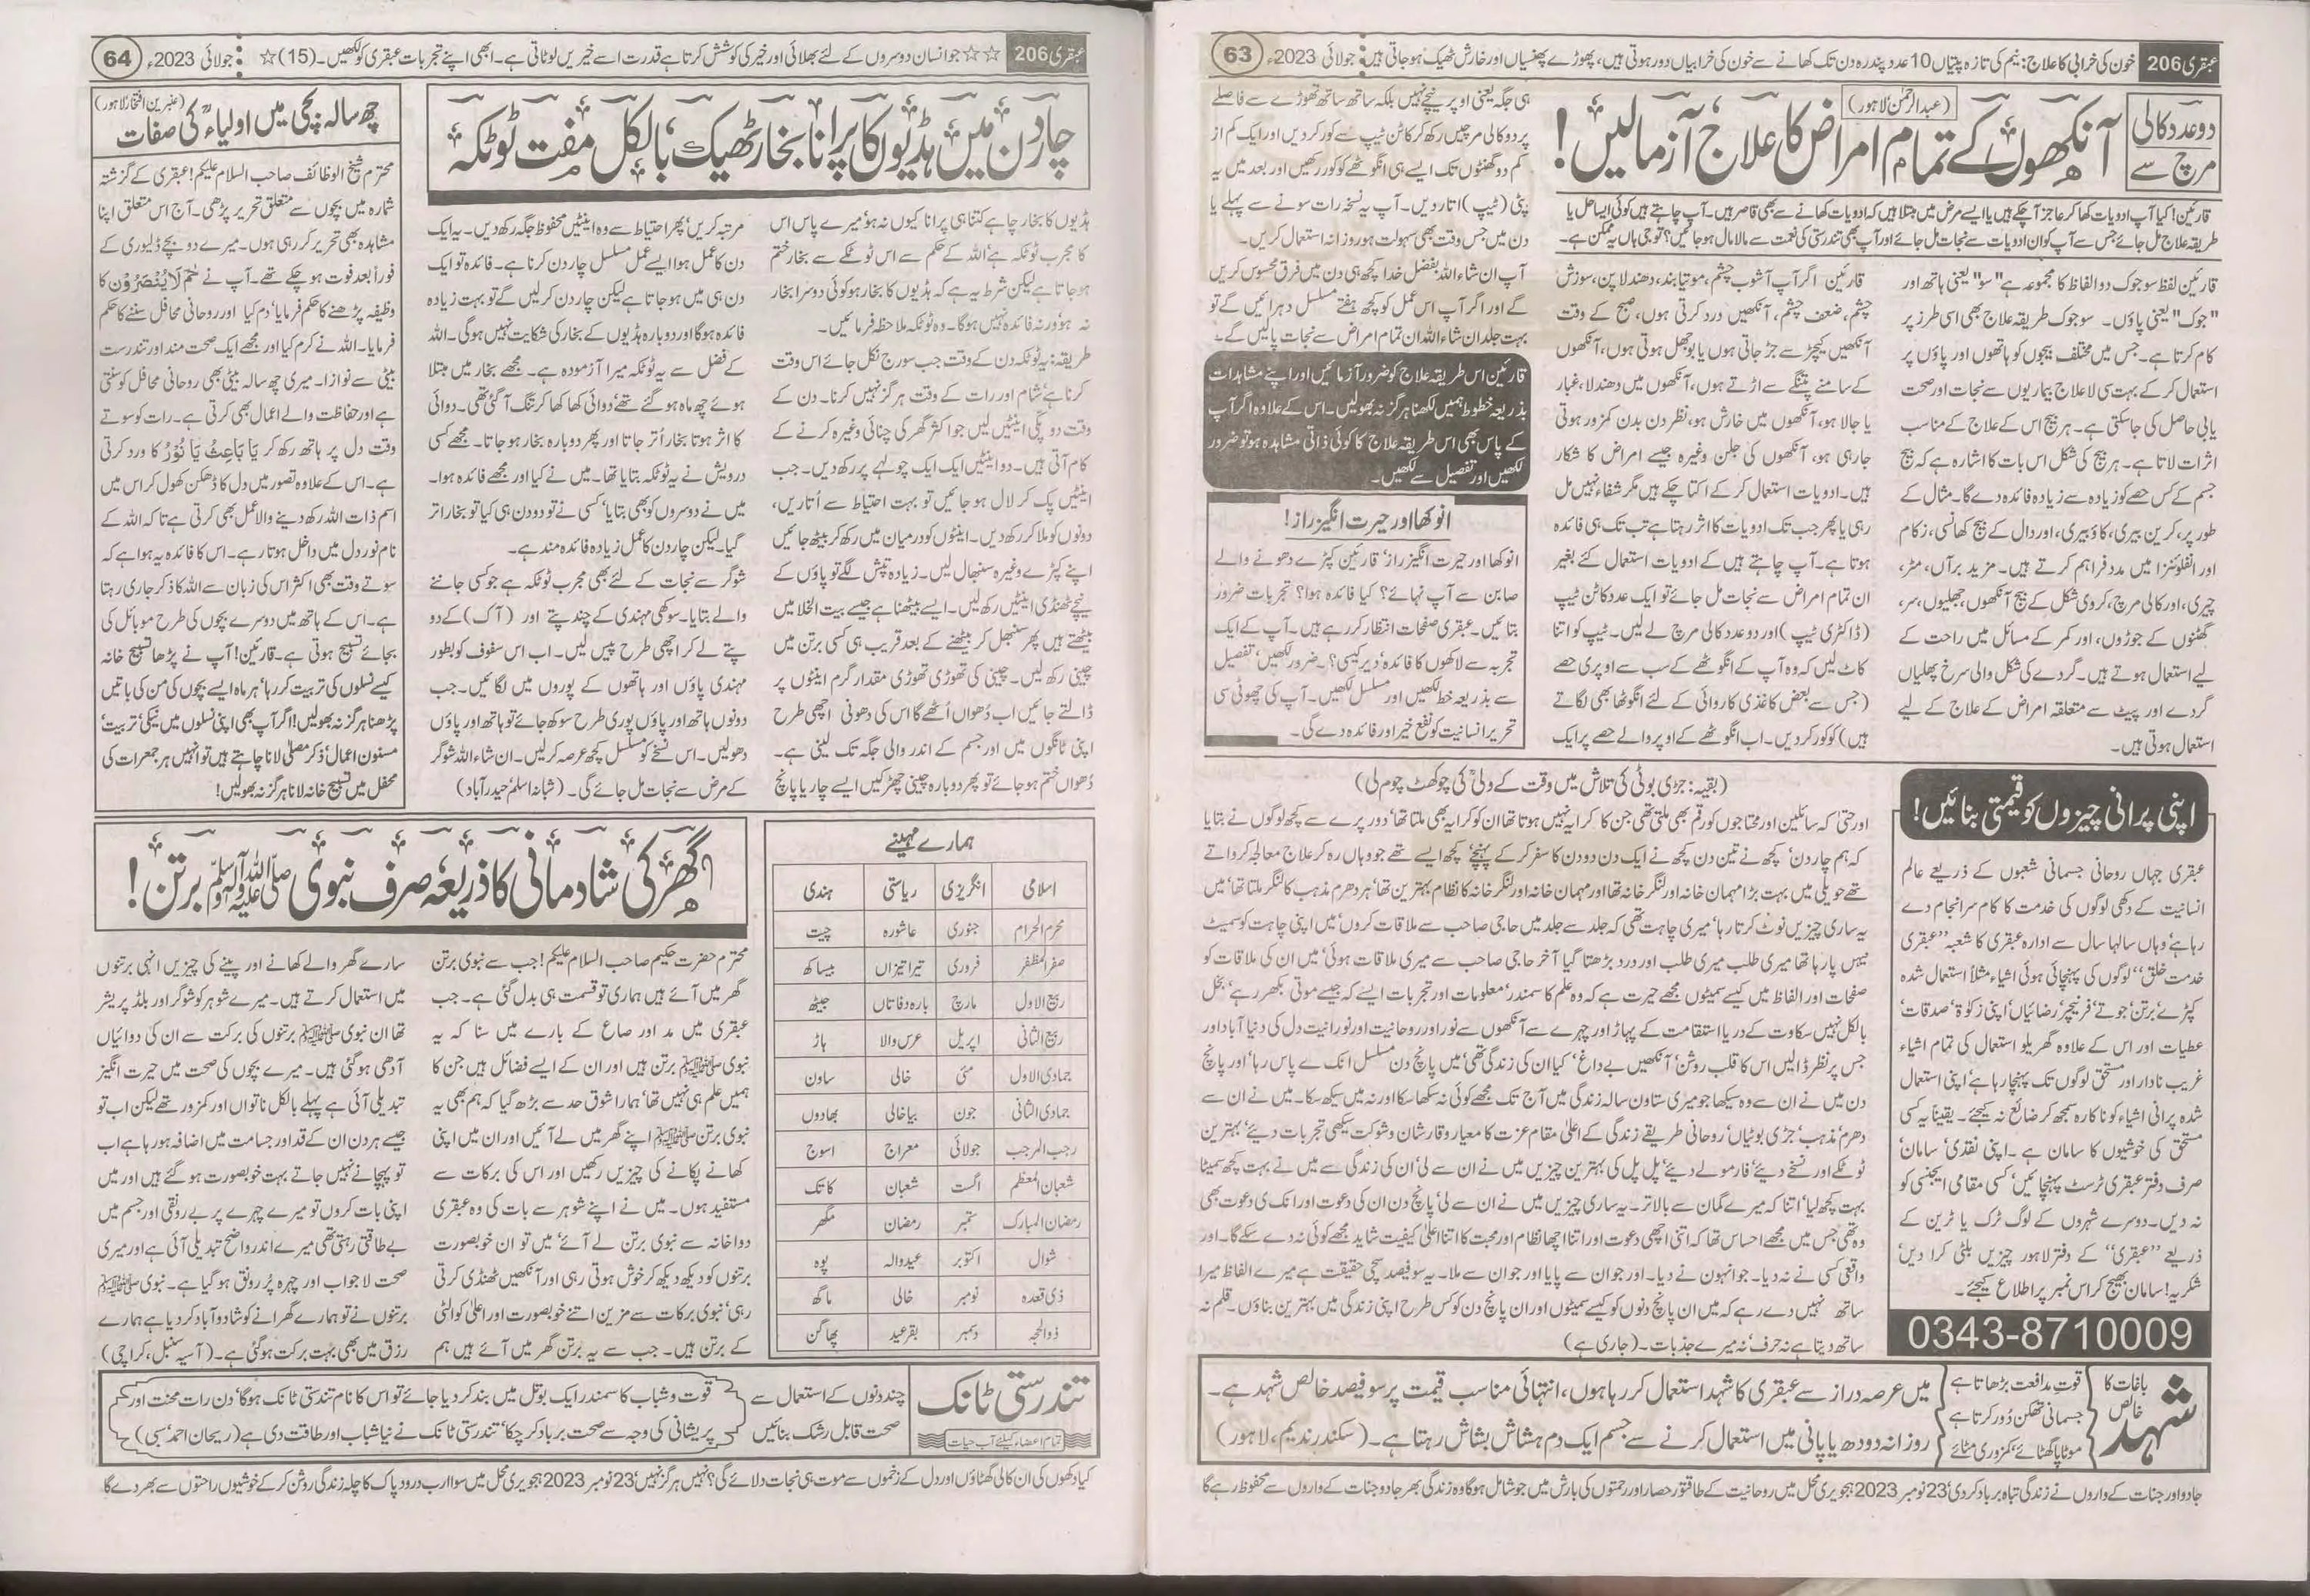 عبقری 206 خون کی خرابی کا علاج: نیم کی تازہ پتیاں 10 عدد پندرہ دن تک کھانے سے خون کی خرابیاں دور ہوتی ہیں، پھوڑے پھنسیاں اور خارش ٹھیک ہوجاتی ہیں جولائی 2023ء 63
دو عدد کالی
مرچ سے
آنکھوں کے تمام امراض کا علاج آزمالیں!
(عبدالرحمٰن لاہور)
قارئین! کیا آپ ادویات کھا کر عاجز آچکے ہیں یا ایسے مرض میں مبتلا ہیں کہ ادویات کھانے سے بھی قاصر ہیں۔ آپ چاہتے ہیں کوئی ایسا حل یا
طریقہ علاج مل جائے جس سے آپ کو ان ادویات سے نجات مل جائے اور آپ بھی تندرستی کی نعمت سے مالا مال ہوجائیں؟ تو جی ہاں یہ ممکن ہے۔
قارئین لفظ سوجوک دو الفاظ کا مجموعہ ہے "سو" یعنی ہاتھ اور
"جوک" یعنی پاؤں۔ سوجوک طریقہ علاج بھی اسی طرز پر
کام کرتا ہے۔ جس میں مختلف بیجوں کو ہاتھوں اور پاؤں پر
استعمال کر کے بہت سی لاعلاج بیماریوں سے نجات اور صحت
یابی حاصل کی جاسکتی ہے۔ ہر بیج اس کے علاج کے مناسب
اثرات لاتا ہے۔ ہر بیج کی شکل اس بات کا اشارہ ہے کہ بیج
جسم کے کس حصے کو زیادہ سے زیادہ فائدہ دے گا۔ مثال کے
طور پر، کرین بیری، کاؤبیری، اور دال کے بیج کھانسی، زکام
اور انفلوئنزا میں مدد فراہم کرتے ہیں۔ مزید برآں، مٹر،
چیری، اور کالی مرچ، کروی شکل کے بیج آنکھوں، جھلیوں، سر،
گھٹنوں کے جوڑوں، اور کمر کے مسائل میں راحت کے
لیے استعمال ہوتے ہیں۔ گردے کی شکل والی سرخ پھلیاں
گردے اور پیٹ سے متعلقہ امراض کے علاج کے لیے
استعمال ہوتی ہیں۔
قارئین اگر آپ آشوب چشم، موتیا بند، دھندلا پن، سوزش
چشم، ضعف چشم، آنکھیں درد کرتی ہوں، صبح کے وقت
آنکھیں کیچڑ سے جڑ جاتی ہوں یا بوجھل ہوتی ہوں، آنکھوں
کے سامنے پتنگے سے اڑتے ہوں، آنکھوں میں دھندلا، غبار
یا جالا ہو، آنکھوں میں خارش ہو، نظر دن بدن کمزور ہوتی
جارہی ہو، آنکھوں کی جلن وغیرہ جیسے امراض کا شکار
ہیں۔ ادویات استعمال کر کے اکتا چکے ہیں مگر شفاء نہیں مل
رہی یا پھر جب تک ادویات کا اثر رہتا ہے تب تک ہی فائدہ
ہوتا ہے۔ آپ چاہتے ہیں کے ادویات استعمال کئے بغیر
ان تمام امراض سے نجات مل جائے تو ایک عدد کاٹن ٹیپ
(ڈاکٹری ٹیپ) اور دو عدد کالی مرچ لے لیں۔ ٹیپ کو اتنا
کاٹ لیں کہ وہ آپ کے انگوٹھے کے سب سے اوپری حصے
(جس سے بعض کاغذی کاروائی کے لئے انگوٹھا بھی لگاتے
ہیں) کو کور کردیں۔ اب انگوٹھے کے اوپر والے حصے پر ایک
ہی جگہ یعنی اوپر نیچے نہیں بلکہ ساتھ ساتھ تھوڑے سے فاصلے
پر دو کالی مرچیں رکھ کر کاٹن ٹیپ سے کور کردیں اور ایک کم از
کم دو گھنٹوں تک ایسے ہی انگوٹھے کو کور رکھیں اور بعد میں یہ
پٹی (ٹیپ) اتار دیں۔ آپ یہ نسخہ رات سونے سے پہلے یا
دن میں جس وقت بھی سہولت ہو روزانہ استعمال کریں۔
آپ ان شاء اللہ بفضل خدا کچھ ہی دن میں فرق محسوس کریں
گے اور اگر آپ اس عمل کو کچھ ہفتے مسلسل دہرائیں گے تو
بہت جلد ان شاء اللہ ان تمام امراض سے نجات پالیں گے۔
قارئین اس طریقہ علاج کو ضرور آزمائیں اور اپنے مشاہدات
بذریعہ خطوط ہمیں لکھنا ہرگز نہ بھولیں۔ اس کے علاوہ اگر آپ
کے پاس بھی اس طریقہ علاج کا کوئی ذاتی مشاہدہ ہو تو ضرور
لکھیں اور تفصیل سے لکھیں۔
انوکھا اور حیرت انگیز راز!
انوکھا اور حیرت انگیز راز! قارئین کپڑے دھونے والے
صابن سے آپ نہائے؟ کیا فائدہ ہوا؟ تجربات ضرور
بتائیں۔ عبقری صفحات انتظار کررہے ہیں۔ آپ کے ایک
تجربہ سے لاکھوں کا فائدہ، دیر کیسی؟۔ ضرور لکھیں، تفصیل
سے بذریعہ خط لکھیں اور مسلسل لکھیں۔ آپ کی چھوٹی سی
تحریر انسانیت کو نفع خیر اور فائدہ دے گی۔
اپنی پرانی چیزوں کو قیمتی بنائیں!
عبقری جہاں روحانی جسمانی شعبوں کے ذریعے عالم
انسانیت کے دکھی لوگوں کی خدمت کا کام سرانجام دے
رہا ہے، وہاں سالہا سال سے ادارہ عبقری کا شعبہ "عبقری
خدمت خلق" لوگوں کی پہنچائی ہوئی اشیاء مثلاً استعمال شدہ
کپڑے، برتن، جوتے، فرنیچر، رضائیاں، اپنی زکوٰۃ، صدقات،
عطیات اور اس کے علاوہ گھریلو استعمال کی تمام اشیاء
غریب نادار اور مستحق لوگوں تک پہنچا رہا ہے، اپنی استعمال
شدہ پرانی اشیاء کو ناکارہ سمجھ کر ضائع نہ کیجئے۔ یقیناً یہ کسی
مستحق کی خوشیوں کا سامان ہے ۔ اپنی نقدی، سامان
صرف دفتر عبقری ٹرسٹ پہنچائیں، کسی مقامی ایجنسی کو
نہ دیں۔ دوسرے شہروں کے لوگ ٹرک یا ٹرین کے
ذریعے "عبقری" کے دفتر لاہور چیزیں بلٹی کرا دیں،
شکریہ! سامان بھیج کر اس نمبر پر اطلاع کیجئے۔
0343-8710009
(بقیہ: جڑی بوٹی کی تلاش میں وقت کے ولی کی چوکھٹ چوم لی)
اور حتیٰ کہ سائلین اور محتاجوں کو رقم بھی ملتی تھی جن کا کرایہ نہیں ہوتا تھا ان کو کرایہ بھی ملتا تھا، دور پرے سے کچھ لوگوں نے بتایا
کہ ہم چار دن، کچھ نے تین دن کچھ نے ایک دن دو دن کا سفر کر کے پہنچے، کچھ ایسے تھے جو وہاں رہ کر علاج معالجہ کرواتے
تھے حویلی میں بہت بڑا مہمان خانہ اور لنگر خانہ تھا اور مہمان خانہ اور لنگر خانہ کا نظام بہترین تھا، ہر دھرم مذہب کا لنگر ملتا تھا، میں
یہ ساری چیزیں نوٹ کرتا رہا، میری چاہت تھی کہ جلد سے جلد میں حاجی صاحب سے ملاقات کروں، میں اپنی چاہت کو سمیٹ
نہیں پا رہا تھا میری طلب میری طلب اور درد بڑھتا گیا آخر حاجی صاحب سے میری ملاقات ہوئی، میں ان کی ملاقات کو
صفحات اور الفاظ میں کیسے سمیٹوں مجھے حیرت ہے کہ وہ علم کا سمندر، معلومات اور تجربات ایسے کہ جیسے موتی بکھر رہے، بخل
بالکل نہیں سکاوت کے دریا استقامت کے پہاڑ اور چہرے سے آنکھوں سے نور اور روحانیت اور نورانیت دل کی دنیا آباد اور
جس پر نظر ڈالیں اس کا قلب روشن، آنکھیں بے داغ، کیا ان کی زندگی تھی، میں پانچ دن مسلسل انکے پاس رہا، اور پانچ
دن میں نے ان سے وہ سیکھا جو میری ستاون سالہ زندگی میں آج تک مجھے کوئی نہ سکھا سکا اور نہ میں سیکھ سکا۔ میں نے ان سے
دھرم، مذہب، جڑی بوٹیاں، روحانی طریقے زندگی کے اعلیٰ مقام عزت کا معیار وقار شان و شوکت سیکھی تجربات دیئے، بہترین
ٹوٹکے اور نسخے دیئے، فارمولے دیئے، پل پل کی بہترین چیزیں میں نے ان سے لی، ان کی زندگی سے میں نے بہت کچھ سمیٹا
بہت کچھ لیا، اتنا کہ میرے گمان سے بالاتر۔ یہ ساری چیزیں میں نے ان سے لی، پانچ دن ان کی دعوت اور انکی دعوت بھی
وہ تھی جس میں مجھے احساس تھا کہ اتنی اچھی دعوت اور اتنا اچھا نظام اور محبت کا اتنا اعلیٰ کیفیت شاید مجھے کوئی نہ دے سکے گا۔ اور
واقعی کسی نے نہ دیا۔ جو انہوں نے دیا۔ اور جو ان سے پایا اور جو ان سے ملا۔ یہ سو فیصد سچی حقیقت ہے میرے الفاظ میرا
ساتھ نہیں دے رہے کہ میں ان پانچ دنوں کو کیسے سمیٹوں اور ان پانچ دن کو کس طرح اپنی زندگی میں بہترین بناؤں۔ قلم نہ
ساتھ دیتا ہے نہ حرف، نہ میرے جذبات۔ (جاری ہے)
باغات کا
خالص
شہد
قوتِ مدافعت بڑھاتا ہے
جسمانی تھکن دور کرتا ہے
موٹاپا گھٹائے، کمزوری مٹائے
میں عرصہ دراز سے عبقری کا شہد استعمال کر رہا ہوں، انتہائی مناسب قیمت پر سو فیصد خالص شہد ہے۔
روزانہ دودھ یا پانی میں استعمال کرنے سے جسم ایک دم ہشاش بشاش رہتا ہے۔ (سکندر ندیم، لاہور)
جادو اور جنات کے داروں نے زندگی تباہ برباد کردی، 23 نومبر 2023 ہجویری محل میں روحانیت کے طاقتور حصار اور رحمتوں کی بارش میں جو شامل ہوگا وہ زندگی بھر جادو جنات کے واروں سے محفوظ رہے گا
عبقری 206 ☆☆ جو انسان دوسروں کے لئے بھلائی اور خیر کی کوشش کرتا ہے قدرت اسے خیریں لوٹاتی ہے۔ ابھی اپنے تجربات عبقری کو لکھیں۔ (15) ☆ جولائی 2023ء 64
چار دن میں ہڈیوں کا پرانا بخار ٹھیک، بالکل مفت ٹوٹکہ
ہڈیوں کا بخار چاہے کتنا ہی پرانا کیوں نہ ہو، میرے پاس اس
کا مجرب ٹوٹکہ ہے، اللہ کے حکم سے اس ٹوٹکے سے بخار ختم
ہوجاتا ہے لیکن شرط یہ ہے کہ ہڈیوں کا بخار ہو کوئی دوسرا بخار
نہ ہو، ورنہ فائدہ نہیں ہوگا۔ وہ ٹوٹکہ ملاحظہ فرمائیں۔
طریقہ: یہ ٹوٹکہ دن کے وقت جب سورج نکل جائے اس وقت
کرنا ہے، شام اور رات کے وقت ہرگز نہیں کرنا۔ دن کے
وقت دو پکی اینٹیں لیں جو اکثر گھر کی چنائی وغیرہ کرنے کے
کام آتی ہیں۔ دو اینٹیں ایک ایک چولہے پر رکھ دیں۔ جب
اینٹیں پک کر لال ہو جائیں تو بہت احتیاط سے اُتاریں،
دونوں کو ملا کر رکھ دیں۔ اینٹوں کو درمیان میں رکھ کر بیٹھ جائیں
اپنے کپڑے وغیرہ سنبھال لیں۔ زیادہ تپش لگے تو پاؤں کے
نیچے ٹھنڈی اینٹیں رکھ لیں۔ ایسے بیٹھنا ہے جیسے بیت الخلا میں
بیٹھتے ہیں پھر سنبھل کر بیٹھنے کے بعد قریب ہی کسی برتن میں
چینی رکھ لیں۔ چینی کی تھوڑی تھوڑی مقدار گرم اینٹوں پر
ڈالتے جائیں اب دُھواں اُٹھے گا اس کی دھونی اچھی طرح
اپنی ٹانگوں میں اور جسم کے اندر والی جگہ تک لینی ہے۔
دُھواں ختم ہوجائے تو پھر دوبارہ چینی چھڑکیں ایسے چار یا پانچ
مرتبہ کریں، پھر احتیاط سے وہ اینٹیں محفوظ جگہ رکھ دیں۔ یہ ایک
دن کا عمل ہوا ایسے عمل مسلسل چار دن کرنا ہے۔ فائدہ تو ایک
دن ہی میں ہوجاتا ہے لیکن چار دن کرلیں گے تو بہت زیادہ
فائدہ ہوگا اور دوبارہ ہڈیوں کے بخار کی شکایت نہیں ہوگی۔ اللہ
کے فضل سے یہ ٹوٹکہ میرا آزمودہ ہے۔ مجھے بخار میں مبتلا
ہوئے چھ ماہ ہو گئے تھے، دوائی کھا کھا کر تنگ آگئی تھی۔ دوائی
کا اثر ہوتا بخار اُتر جاتا اور پھر دوبارہ بخار ہوجاتا۔ مجھے کسی
درویش نے یہ ٹوٹکہ بتایا تھا۔ میں نے کیا اور مجھے فائدہ ہوا۔
میں نے دوسروں کو بھی بتایا، کسی نے تو دو دن ہی کیا تو بخار اتر
گیا۔ لیکن چار دن کا عمل زیادہ فائدہ مند ہے۔
شوگر سے نجات کے لئے بھی مجرب ٹوٹکہ ہے جو کسی جاننے
والے بتایا۔ سوکھی مہندی کے چند پتے اور (آک) کے دو
پتے لے کر اچھی طرح پیس لیں۔ اب اس سفوف کو بطور
مہندی پاؤں اور ہاتھوں کے پوروں میں لگائیں۔ جب
دونوں ہاتھ اور پاؤں پوری طرح سوکھ جائے تو ہاتھ اور پاؤں
دھولیں۔ اس نسخے کو مسلسل کچھ عرصہ کرلیں۔ ان شاء اللہ شوگر
کے مرض سے نجات مل جائے گی۔ (شبانہ اسلم، حیدرآباد)
چھ سالہ بچی میں اولیاء کی صفات
(عنبرین افتخار، لاہور)
محترم شیخ الوظائف صاحب السلام علیکم! عبقری کے گزشتہ
شمارہ میں بچوں سے متعلق تحریر پڑھی۔ آج اس متعلق اپنا
مشاہدہ بھی تحریر کر رہی ہوں۔ میرے دو بچے ڈلیوری کے
فوراً بعد فوت ہو چکے تھے۔ آپ نے حٰمٓ لَا یُنْصَرُوْن کا
وظیفہ پڑھنے کا حکم فرمایا، دم کیا اور روحانی محافل سننے کا حکم
فرمایا۔ اللہ نے کرم کیا اور مجھے ایک صحت مند اور تندرست
بیٹی سے نوازا۔ میری چھ سالہ بیٹی بھی روحانی محافل کو سنتی
ہے اور حفاظت والے اعمال بھی کرتی ہے۔ رات کو سوتے
وقت دل پر ہاتھ رکھ کر یَا بَاعِثُ یَا نُوْرُ کا ورد کرتی
ہے۔ اس کے علاوہ تصور میں دل کا ڈھکن کھول کر اس میں
اسم ذات اللہ رکھ دینے والا عمل بھی کرتی ہے تاکہ اللہ کے
نام نور دل میں داخل ہوتا رہے۔ اس کا فائدہ یہ ہوا ہے کہ
سوتے وقت بھی اکثر اس کی زبان سے اللہ کا ذکر جاری رہتا
ہے۔ اس کے ہاتھ میں دوسرے بچوں کی طرح موبائل کی
بجائے تسبیح ہوتی ہے۔ قارئین! آپ نے پڑھا تسبیح خانہ
کیسے نسلوں کی تربیت کر رہا، ہر ماہ ایسے بچوں کی من کی باتیں
پڑھنا ہرگز نہ بھولیں! اگر آپ بھی اپنی نسلوں میں نیکی، تربیت،
مسنون اعمال، ذکر مصلی لانا چاہتے ہیں تو انہیں ہر جمعرات کی
محفل میں تسبیح خانہ لانا ہرگز نہ بھولیں!
ہمارے مہینے
اسلامی انگریزی ریاستی ہندی
محرم الحرام جنوری عاشورہ چیت
صفر المظفر فروری تیرا تیزاں بیساکھ
ربیع الاول مارچ بارہ وفاتاں جیٹھ
ربیع الثانی اپریل عرس والا ہاڑ
جمادی الاول مئی خالی ساون
جمادی الثانی جون بیاخالی بھادوں
رجب المرجب جولائی معراج اسوج
شعبان المعظم اگست شعبان کاتک
رمضان المبارک ستمبر رمضان مگھر
شوال اکتوبر عیدوالہ پوہ
ذی قعدہ نومبر خالی ماگھ
ذوالحجہ دسمبر بقرعید پھاگن
گھر کی شادمانی کا ذریعہ صرف نبوی ﷺ برتن!
محترم حضرت حکیم صاحب السلام علیکم! جب سے نبوی برتن
گھر میں آئے ہیں ہماری تو قسمت ہی بدل گئی ہے۔ جب
عبقری میں مد اور صاع کے بارے میں سنا کہ یہ
نبوی ﷺ برتن ہیں اور ان کے ایسے فضائل ہیں جن کا
ہمیں علم ہی نہیں تھا، ہمارا شوق حد سے بڑھ گیا کہ ہم بھی یہ
نبوی برتن ﷺ اپنے گھر میں لے آئیں اور ان میں اپنی
کھانے پکانے کی چیزیں رکھیں اور اس کی برکات سے
مستفید ہوں۔ میں نے اپنے شوہر سے بات کی وہ عبقری
دواخانہ سے نبوی برتن لے آئے، میں تو ان خوبصورت
برتنوں کو دیکھ دیکھ کر خوش ہوتی رہی اور آنکھیں ٹھنڈی کرتی
رہی، نبوی برکات سے مزین اتنے خوبصورت اور اعلیٰ کوالٹی
کے برتن ہیں۔ جب سے یہ برتن گھر میں آئے ہیں ہم
سارے گھر والے کھانے اور پینے کی چیزیں انہی برتنوں
میں استعمال کرتے ہیں۔ میرے شوہر کو شوگر اور بلڈ پریشر
تھا ان نبوی ﷺ برتنوں کی برکت سے ان کی دوائیاں
آدھی ہوگئی ہیں۔ میرے بچوں کی صحت میں حیرت انگیز
تبدیلی آئی ہے پہلے بالکل ناتواں اور کمزور تھے لیکن اب تو
جیسے ہر دن ان کے قد اور جسامت میں اضافہ ہو رہا ہے اب
تو پہچانے نہیں جاتے بہت خوبصورت ہو گئے ہیں اور میں
اپنی بات کروں تو میرے چہرے پر بے رونقی اور جسم میں
بے طاقتی رہتی تھی میرے اندر واضح تبدیلی آئی ہے اور میری
صحت لاجواب اور چہرہ پُر رونق ہو گیا ہے۔ نبوی ﷺ
برتنوں نے تو ہمارے گھرانے کو شاد و آباد کردیا ہے ہمارے
رزق میں بھی بہت برکت ہوگئی ہے۔ (آسیہ سنبل، کراچی)
تندرستی ٹانک
تمام اعضاء کیلئے آب حیات
چند دنوں کے استعمال سے
صحت قابل رشک بنائیں
قوت و شباب کا سمندر ایک بوتل میں بند کر دیا جائے تو اس کا نام تندرستی ٹانک ہوگا، دن رات محنت اور
پریشانی کی وجہ سے صحت برباد کر چکا، تندرستی ٹانک نے نیا شباب اور طاقت دی ہے (ریحان احمد، سبی)
کیا دکھوں کی ان کالی گھٹاؤں اور دل کے زخموں سے موت ہی نجات دلائے گی؟ نہیں ہرگز نہیں، 23 نومبر 2023 ہجویری محل میں سوا ارب درود پاک کا چلہ زندگی روشن کر کے خوشیوں راحتوں سے بھر دے گا